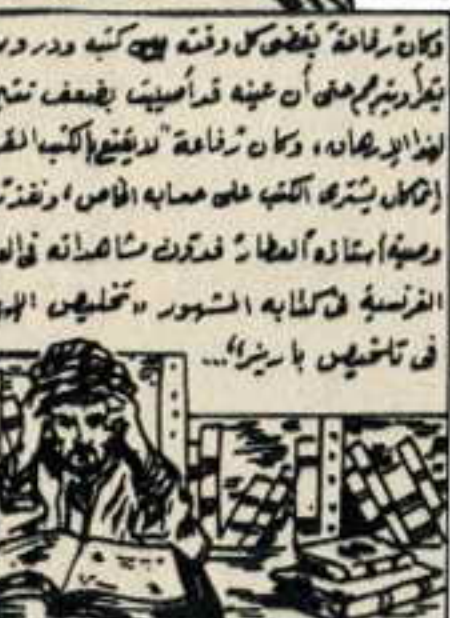 وكان "رفاعة" يقضى كل وقته بين كتبه ودروسه
يقرأ ويترجم حتى أن عينه قد أصيبت بضعف نتيجة
لهذا الإرهاق، وكان "رفاعة" لا يقنع بالكتب المقررة
إنما كان يشترى الكتب على حسابه الخاص، ونفذ
وصية أستاذه "العطار" فدون مشاهداته فى
الفرنسية فى كتابه المشهور "تخليص الإبريز
فى تلخيص باريز"...